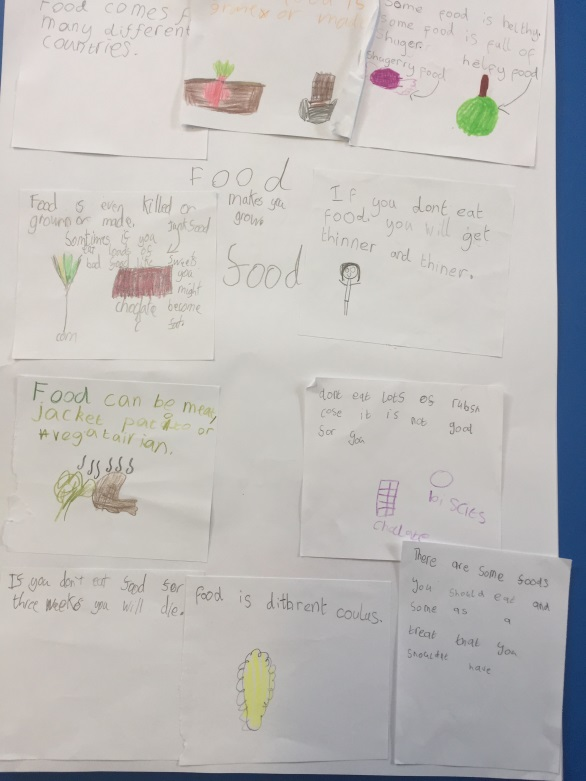 Food comes f
many different
countries.
grown or made
Some food is helthy
some food is full of
shuger.
shugerry food
helfy food
Food
makes you
grow.
food
Food is even killed or
grown or made.
junk food
Somtimes if you
eat loads of
bad food like sweets
you
might
become
fat.
choclate
corn
If you dont eat
food, you will get
thinner and thiner.
Food can be meat,
jacket pacito or
vegatairian.
dont eat lots of rubsh
cose it is not good
for you
bi scies
choclate
If you don't eat food for
three weeks you will die.
food is ditbrent coulas.
There are some foods
you should eat and
some as a
treat that you
shouldnt have